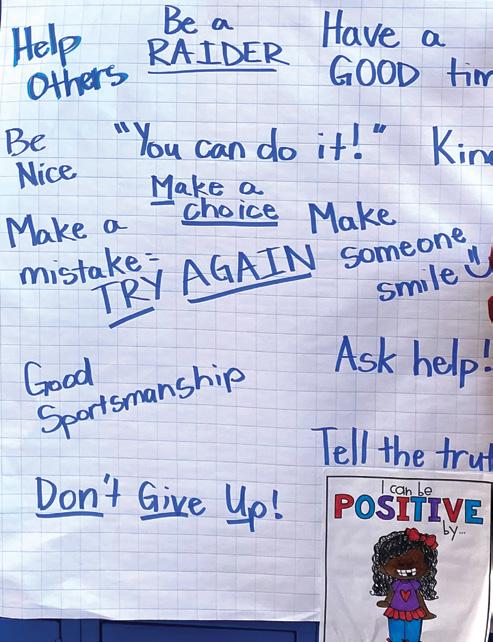 Help
Others
Be a
RAIDER
Have a
GOOD tim
Be
Nice
"You can do it!"
Kin
Make a
choice
Make a
mistake =
TRY AGAIN
Make
someone
smile
Good
Sportsmanship
Ask help!
Tell the trut
Don't Give Up!
I can be
POSITIVE
by...